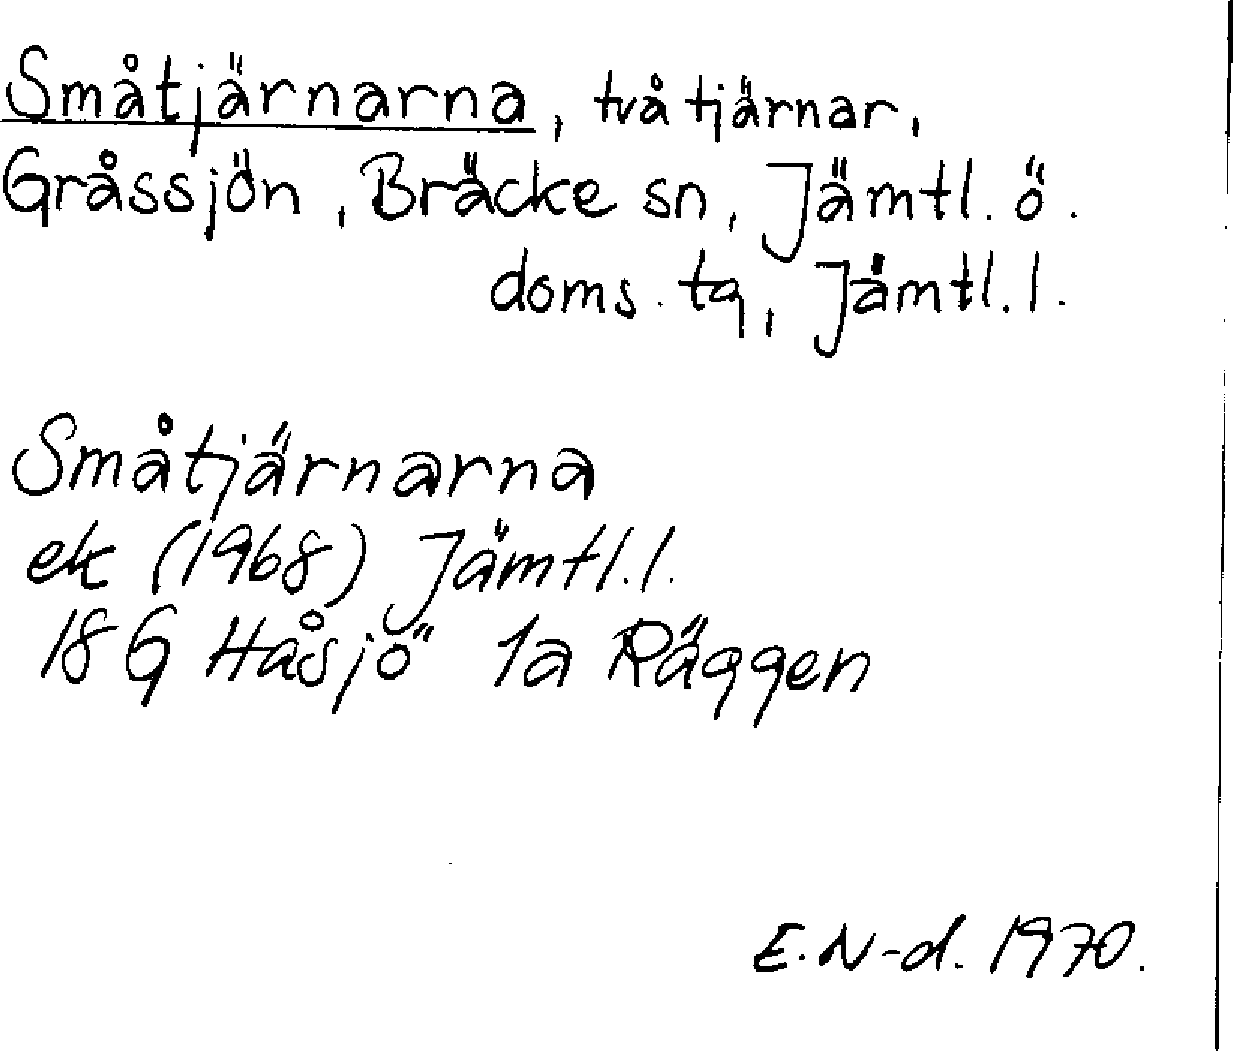 Småtjärnarna, två tjärnar,
Gråssjön, Bräcke sn, Jämtl. ö.
doms. tg, Jämtl. l.
Småtjärnarna
ek (1968) Jämtl. l.
18 G Håsjö 1a Räggen
E. N-d. 1970.